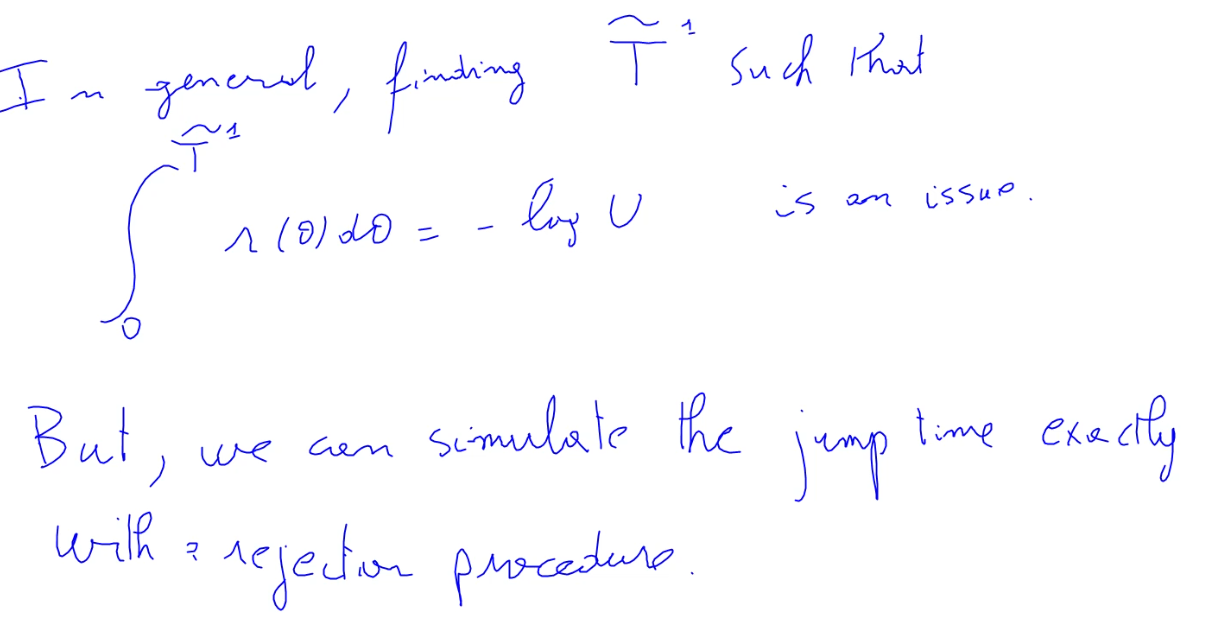 In general, finding T̃¹ such that
∫₀^{T̃¹} r(θ)dθ = - log U is an issue.
But, we can simulate the jump time exactly
with a rejection procedure.